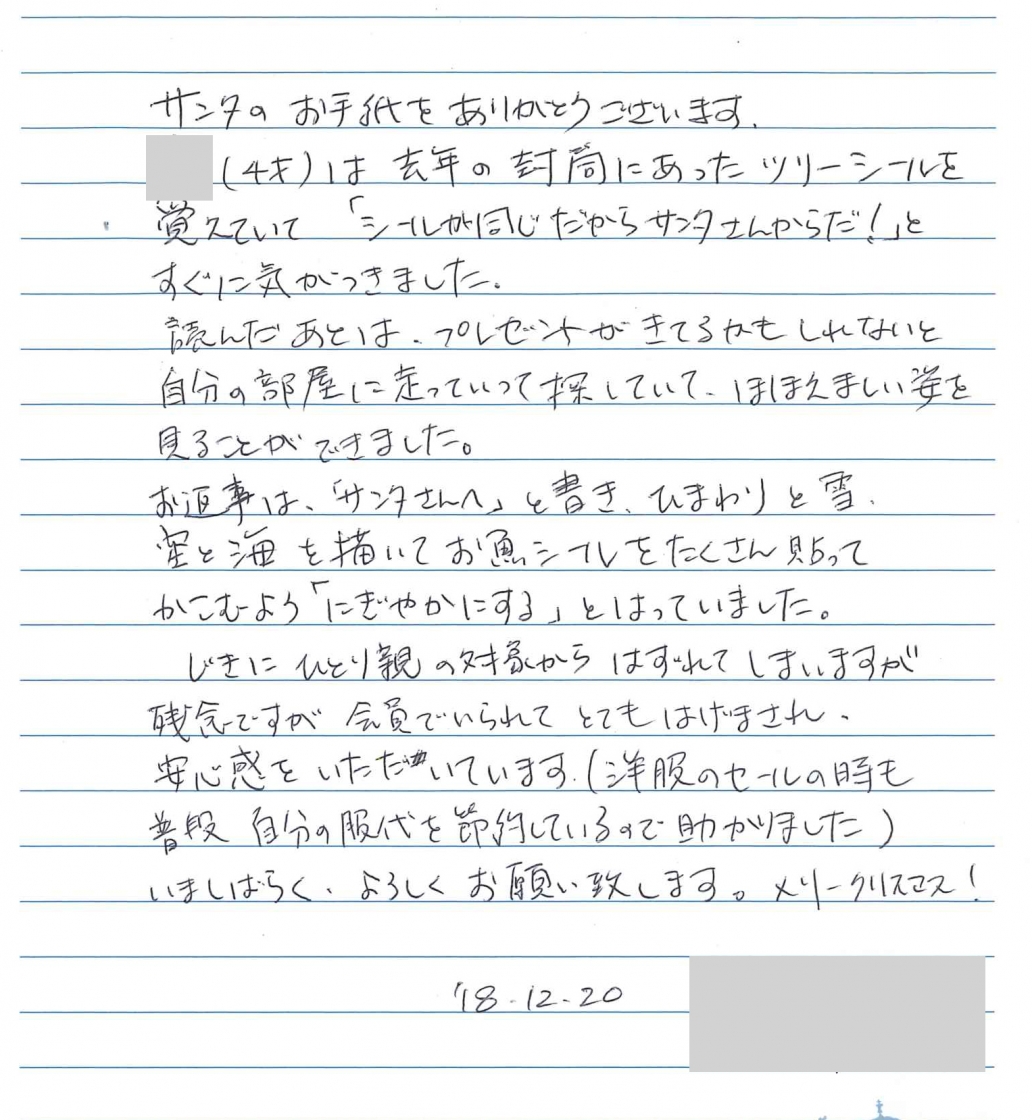 サンタの お手紙を ありがとうございます.
(4才)は 去年の 封筒にあった ツリーシールを
覚えていて 「シールが同じだからサンタさんからだ!」と
すぐに気がつきました.
読んだあとは、プレゼントが きてるかも しれないと
自分の部屋に走っていって探していて、ほほえましい姿を
見ることが できました。
お返事は、「サンタさんへ」と書き、ひまわりと雪、
空と海を描いて お魚シールをたくさん貼って
かこむよう「にぎやかにする」とはっていました。
じきに ひとり親の対象から はずれてしまいますが
残念ですが 会員でいられて とても はげまされ、
安心感を いただいています.(洋服のセールの時も
普段 自分の服代を節約しているので助かりました)
いましばらく、よろしく お願い致します。メリークリスマス!
'18.12.20